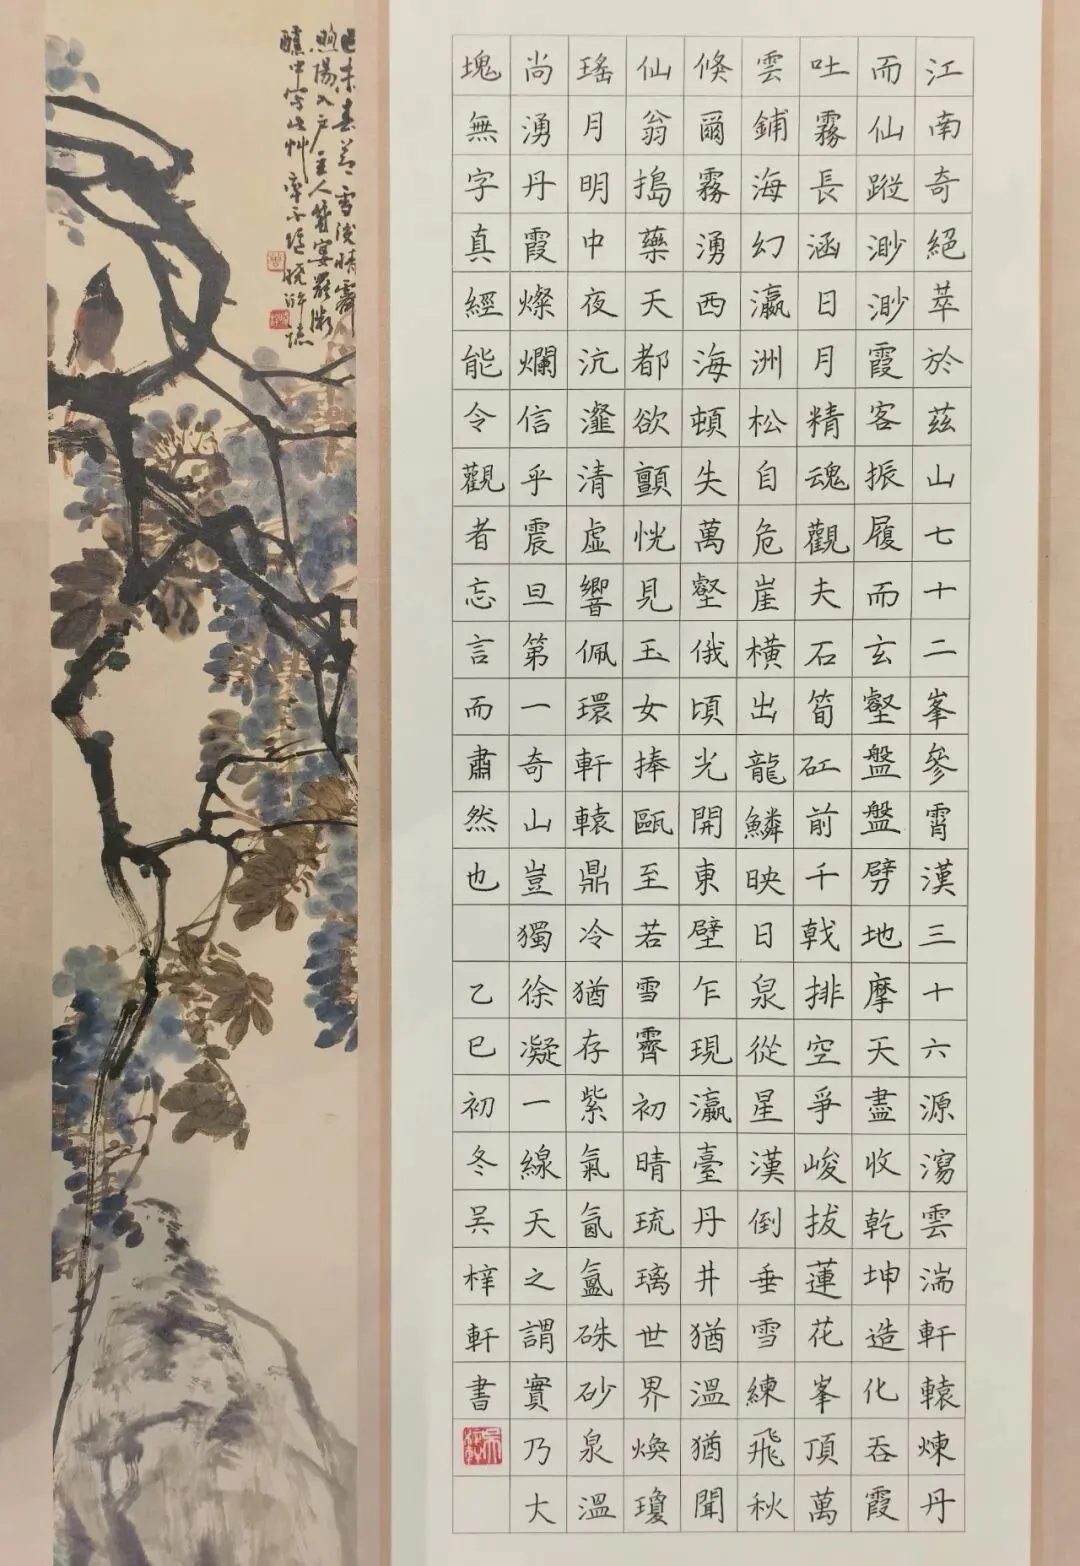 江南奇絕萃於茲山七十二峯參霄漢三十六源瀉雲湍軒轅煉丹
而仙蹤渺渺霞客振履而玄壑盤盤劈地摩天盡收乾坤造化吞霞
吐霧長涵日月精魂觀夫石筍矼前千戟排空爭峻拔蓮花峯頂萬
雲鋪海幻瀛洲松自危崖橫出龍鱗映日泉從星漢倒垂雪練飛秋
倏爾霧湧西海頓失萬壑俄頃光開東壁乍現瀛臺丹井猶溫猶聞
仙翁搗藥天都欲顫恍見玉女捧甌至若雪霽初晴琉璃世界煥瓊
瑤月明中夜沆瀣清虛響佩環軒轅鼎冷猶存紫氣氤氳硃砂泉溫
尚湧丹霞燦爛信乎震旦第一奇山豈獨徐凝一線天之謂實乃大
塊無字真經能令觀者忘言而肅然也 乙巳初冬吳梓軒書
未春節雪後晴霽
煦陽入户主人宴罷微
醺中寫此